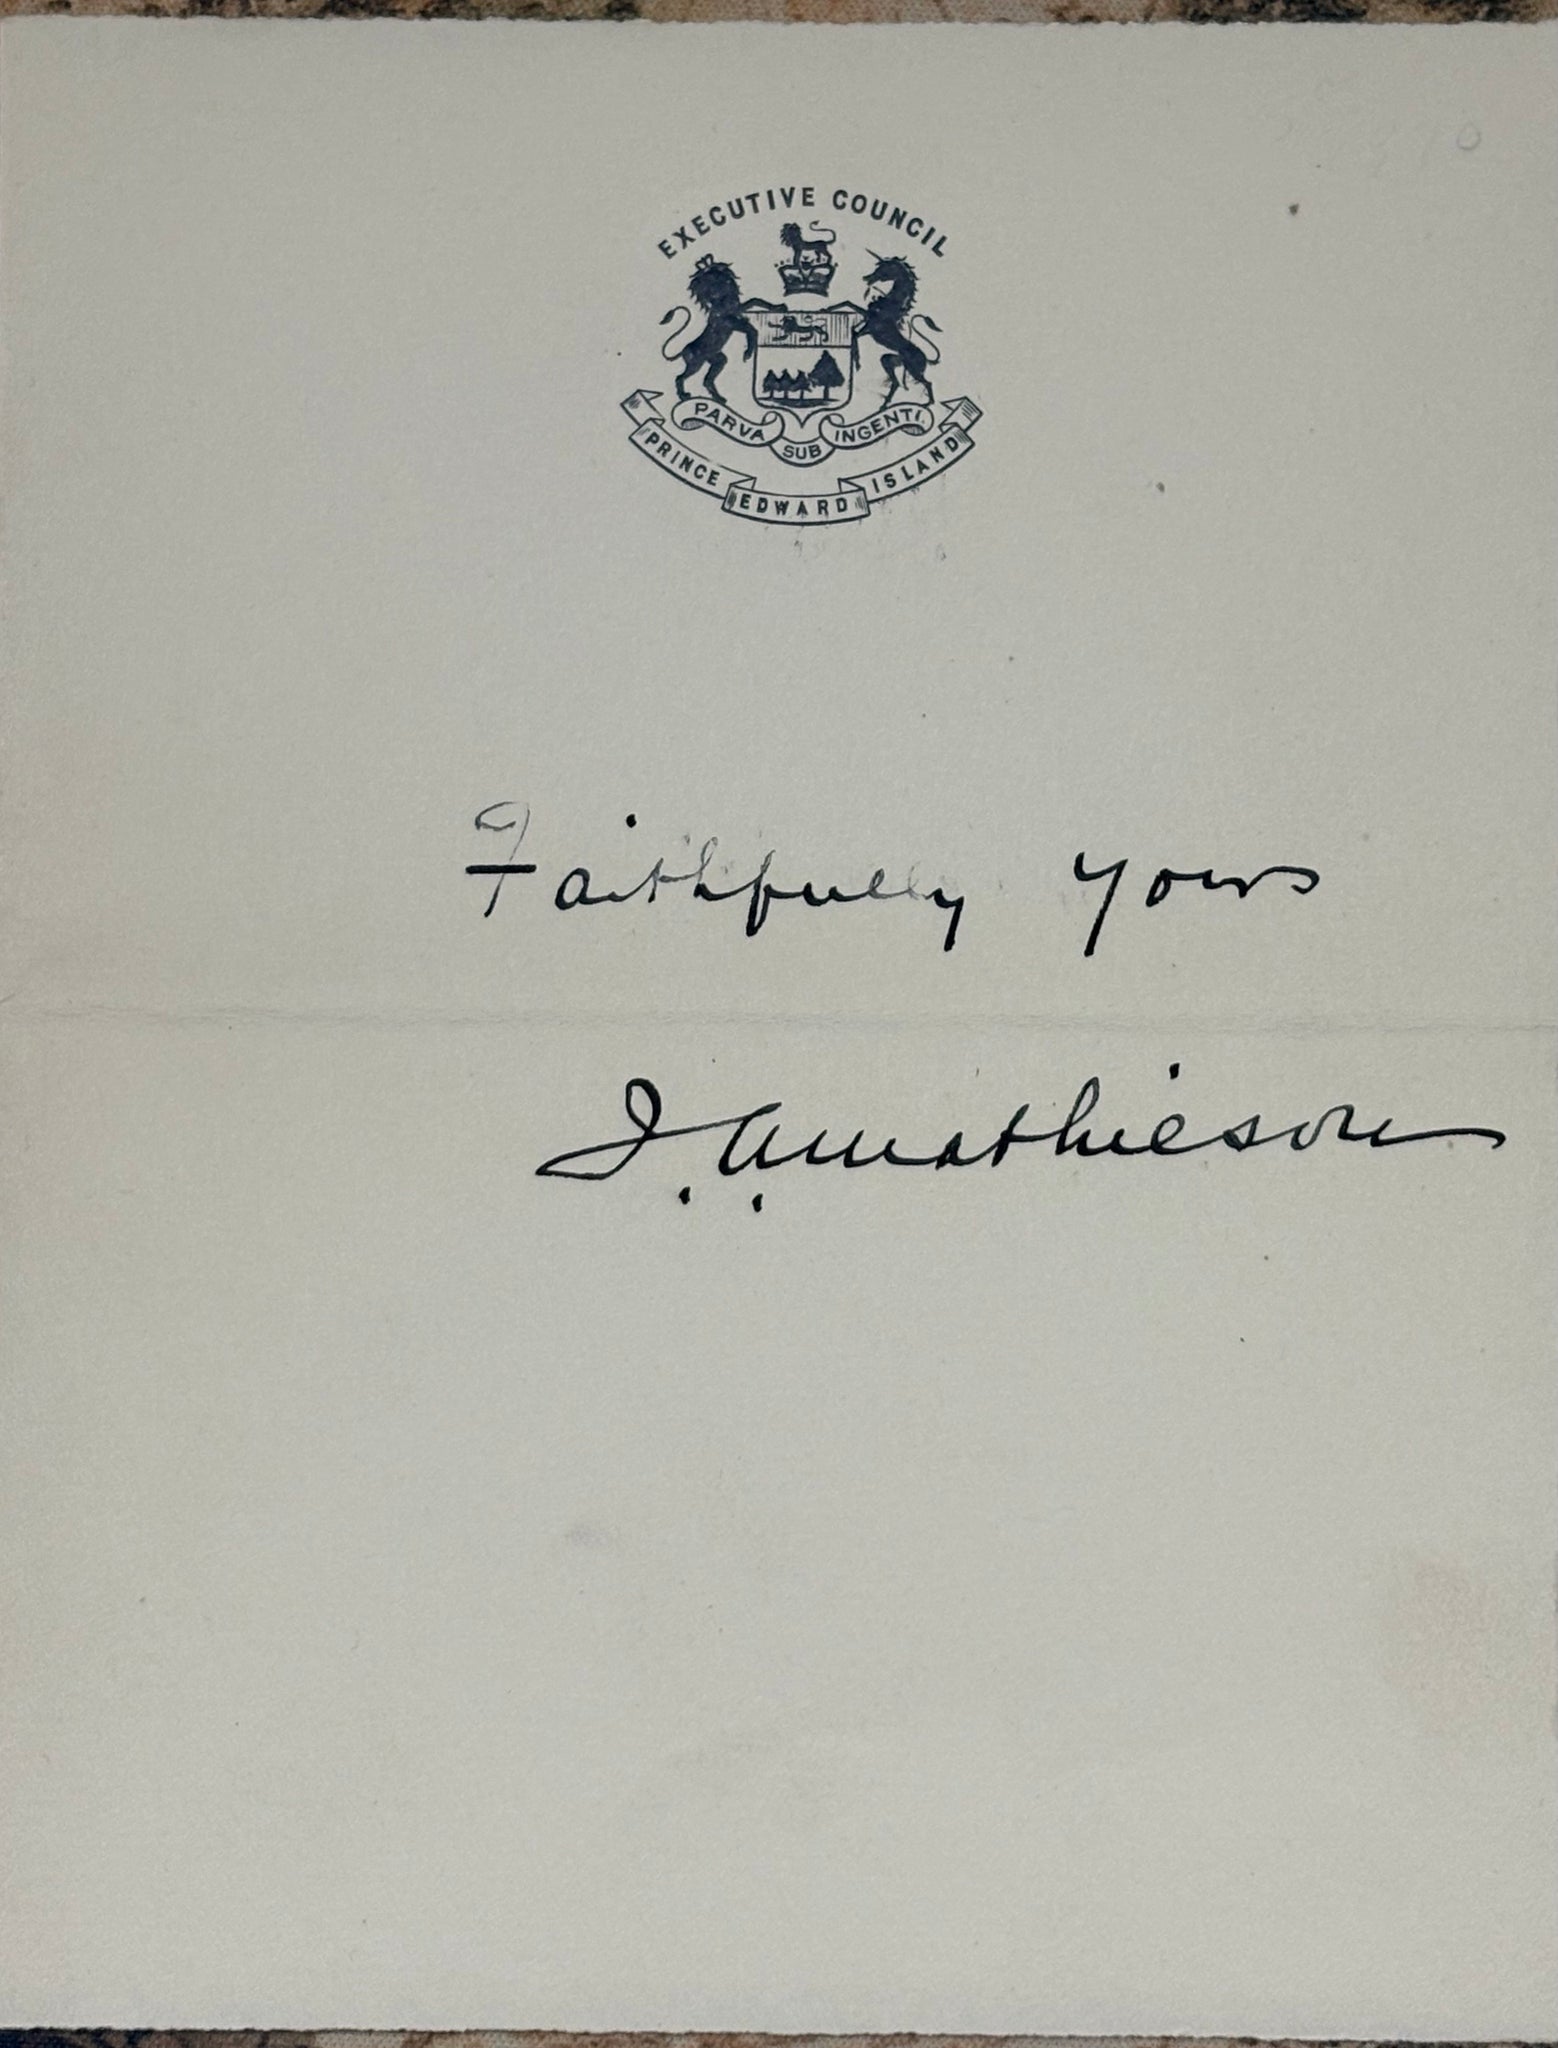 EXECUTIVE COUNCIL
PARVA SUB INGENTI
PRINCE EDWARD ISLAND
Faithfully yours
J. A. Mathieson